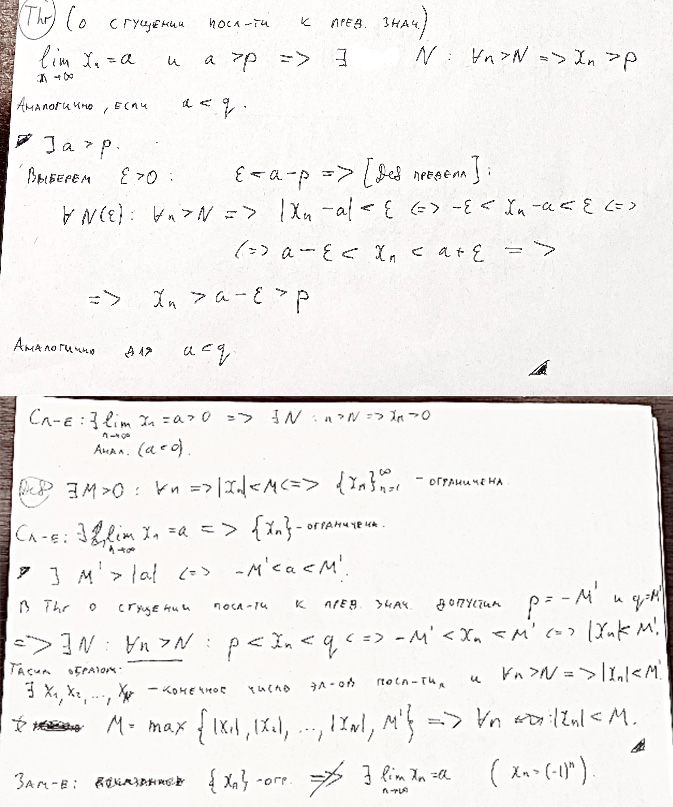 Thr (о сгущении посл-ти к пред. знач.)
lim xₙ = a и a > p => ∃ N : ∀n > N => xₙ > p
n→∞
Аналогично, если a < q.
▶ ∃ a > p.
Выберем ε > 0 : ε < a - p => [Def предела] :
∀ N(ε) : ∀n > N => |xₙ - a| < ε <=> -ε < xₙ - a < ε <=>
<=> a - ε < xₙ < a + ε =>
=> xₙ > a - ε > p
Аналогично для a < q
Сл-е : ∃ lim xₙ = a > 0 => ∃ N : n > N => xₙ > 0
n→∞
Анал. (a < 0).
Def ∃ M > 0 : ∀n => |xₙ| < M <=> {xₙ}ₙ₌₁^∞ - ограничена.
Сл-е : ∃ lim xₙ = a => {xₙ} - ограничена.
n→∞
▶ ∃ M' > |a| <=> -M' < a < M'.
В Thr о сгущении посл-ти к пред. знач. допустим p = -M' и q = M'
=> ∃ N : ∀n > N : p < xₙ < q <=> -M' < xₙ < M' <=> |xₙ| < M'.
Таким образом:
∃ x₁, x₂, ..., x_N - конечное число эл-ов посл-ти и ∀n > N => |xₙ| < M'
M = max {|x₁|, |x₂|, ..., |x_N|, M'} => ∀n : |xₙ| < M.
Зам-е : {xₙ} - огр. ≠> ∃ lim xₙ = a (xₙ = (-1)ⁿ).
n→∞